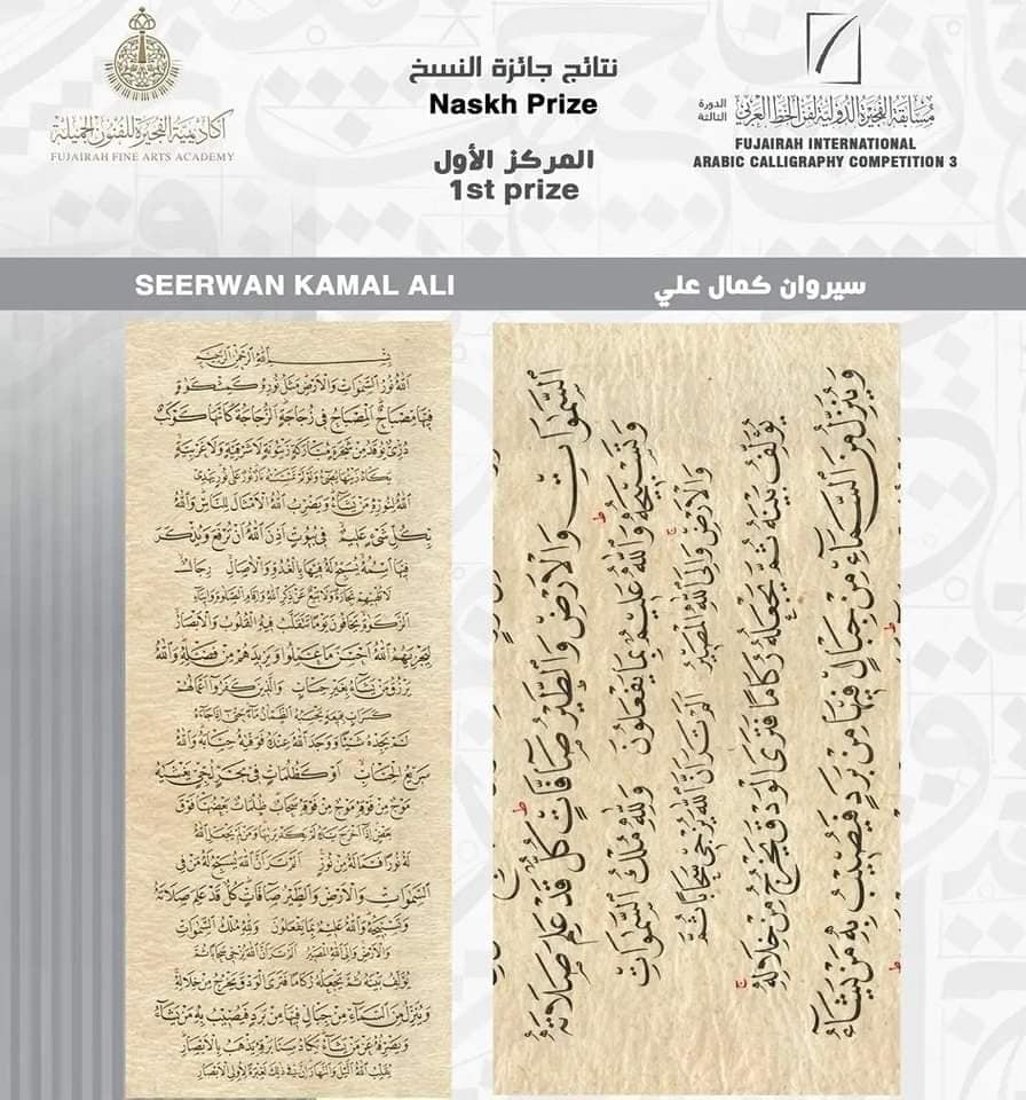 أكاديمية الفجيرة للفنون الجميلة
FUJAIRAH FINE ARTS ACADEMY
نتائج جائزة النسخ
Naskh Prize
المركز الأول
1st prize
مسابقة الفجيرة الدولية لفن الخط العربي
الدورة الثالثة
FUJAIRAH INTERNATIONAL
ARABIC CALLIGRAPHY COMPETITION 3
SEERWAN KAMAL ALI
سيروان كمال علي
بسم الله الرحمن الرحيم
الله نور السموات والأرض مثل نوره كمشكوة
فيها مصباح المصباح في زجاجة الزجاجة كأنها كوكب
دري يوقد من شجرة مباركة زيتونة لا شرقية ولا غربية
يكاد زيتها يضيء ولو لم تمسسه نار نور على نور يهدي
الله لنوره من يشاء ويضرب الله الأمثال للناس والله
بكل شيء عليم في بيوت أذن الله أن ترفع ويذكر
فيها اسمه يسبح له فيها بالغدو والآصال رجال
لا تلهيهم تجارة ولا بيع عن ذكر الله وإقام الصلوة وإيتاء
الزكوة يخافون يوما تتقلب فيه القلوب والأبصار
ليجزيهم الله أحسن ما عملوا ويزيدهم من فضله والله
يرزق من يشاء بغير حساب والذين كفروا أعمالهم
كسراب بقيعة يحسبه الظمآن ماء حتى إذا جاءه
لم يجده شيئا ووجد الله عنده فوفيه حسابه والله
سريع الحساب أو كظلمات في بحر لجي يغشيه
موج من فوقه موج من فوقه سحاب ظلمات بعضها فوق
بعض إذا أخرج يده لم يكد يريها ومن لم يجعل الله
له نورا فما له من نور ألم تر أن الله يسبح له من في
السموات والأرض والطير صافات كل قد علم صلاته
وتسبيحه والله عليم بما يفعلون ولله ملك السموات
والأرض وإلى الله المصير ألم تر أن الله يزجي سحابا ثم
يؤلف بينه ثم يجعله ركاما فترى الودق يخرج من خلاله
وينزل من السماء من جبال فيها من برد فيصيب به من يشاء
ويصرفه عن من يشاء يكاد سنا برقه يذهب بالأبصار
يقلب الله الليل والنهار إن في ذلك لعبرة لأولي الأبصار
السموات والأرض والطير صافات كل قد علم صلاته
وتسبيحه والله عليم بما يفعلون ولله ملك السموات
والأرض وإلى الله المصير ألم تر أن الله يزجي سحابا ثم
يؤلف بينه ثم يجعله ركاما فترى الودق يخرج من خلاله
وينزل من السماء من جبال فيها من برد فيصيب به من يشاء